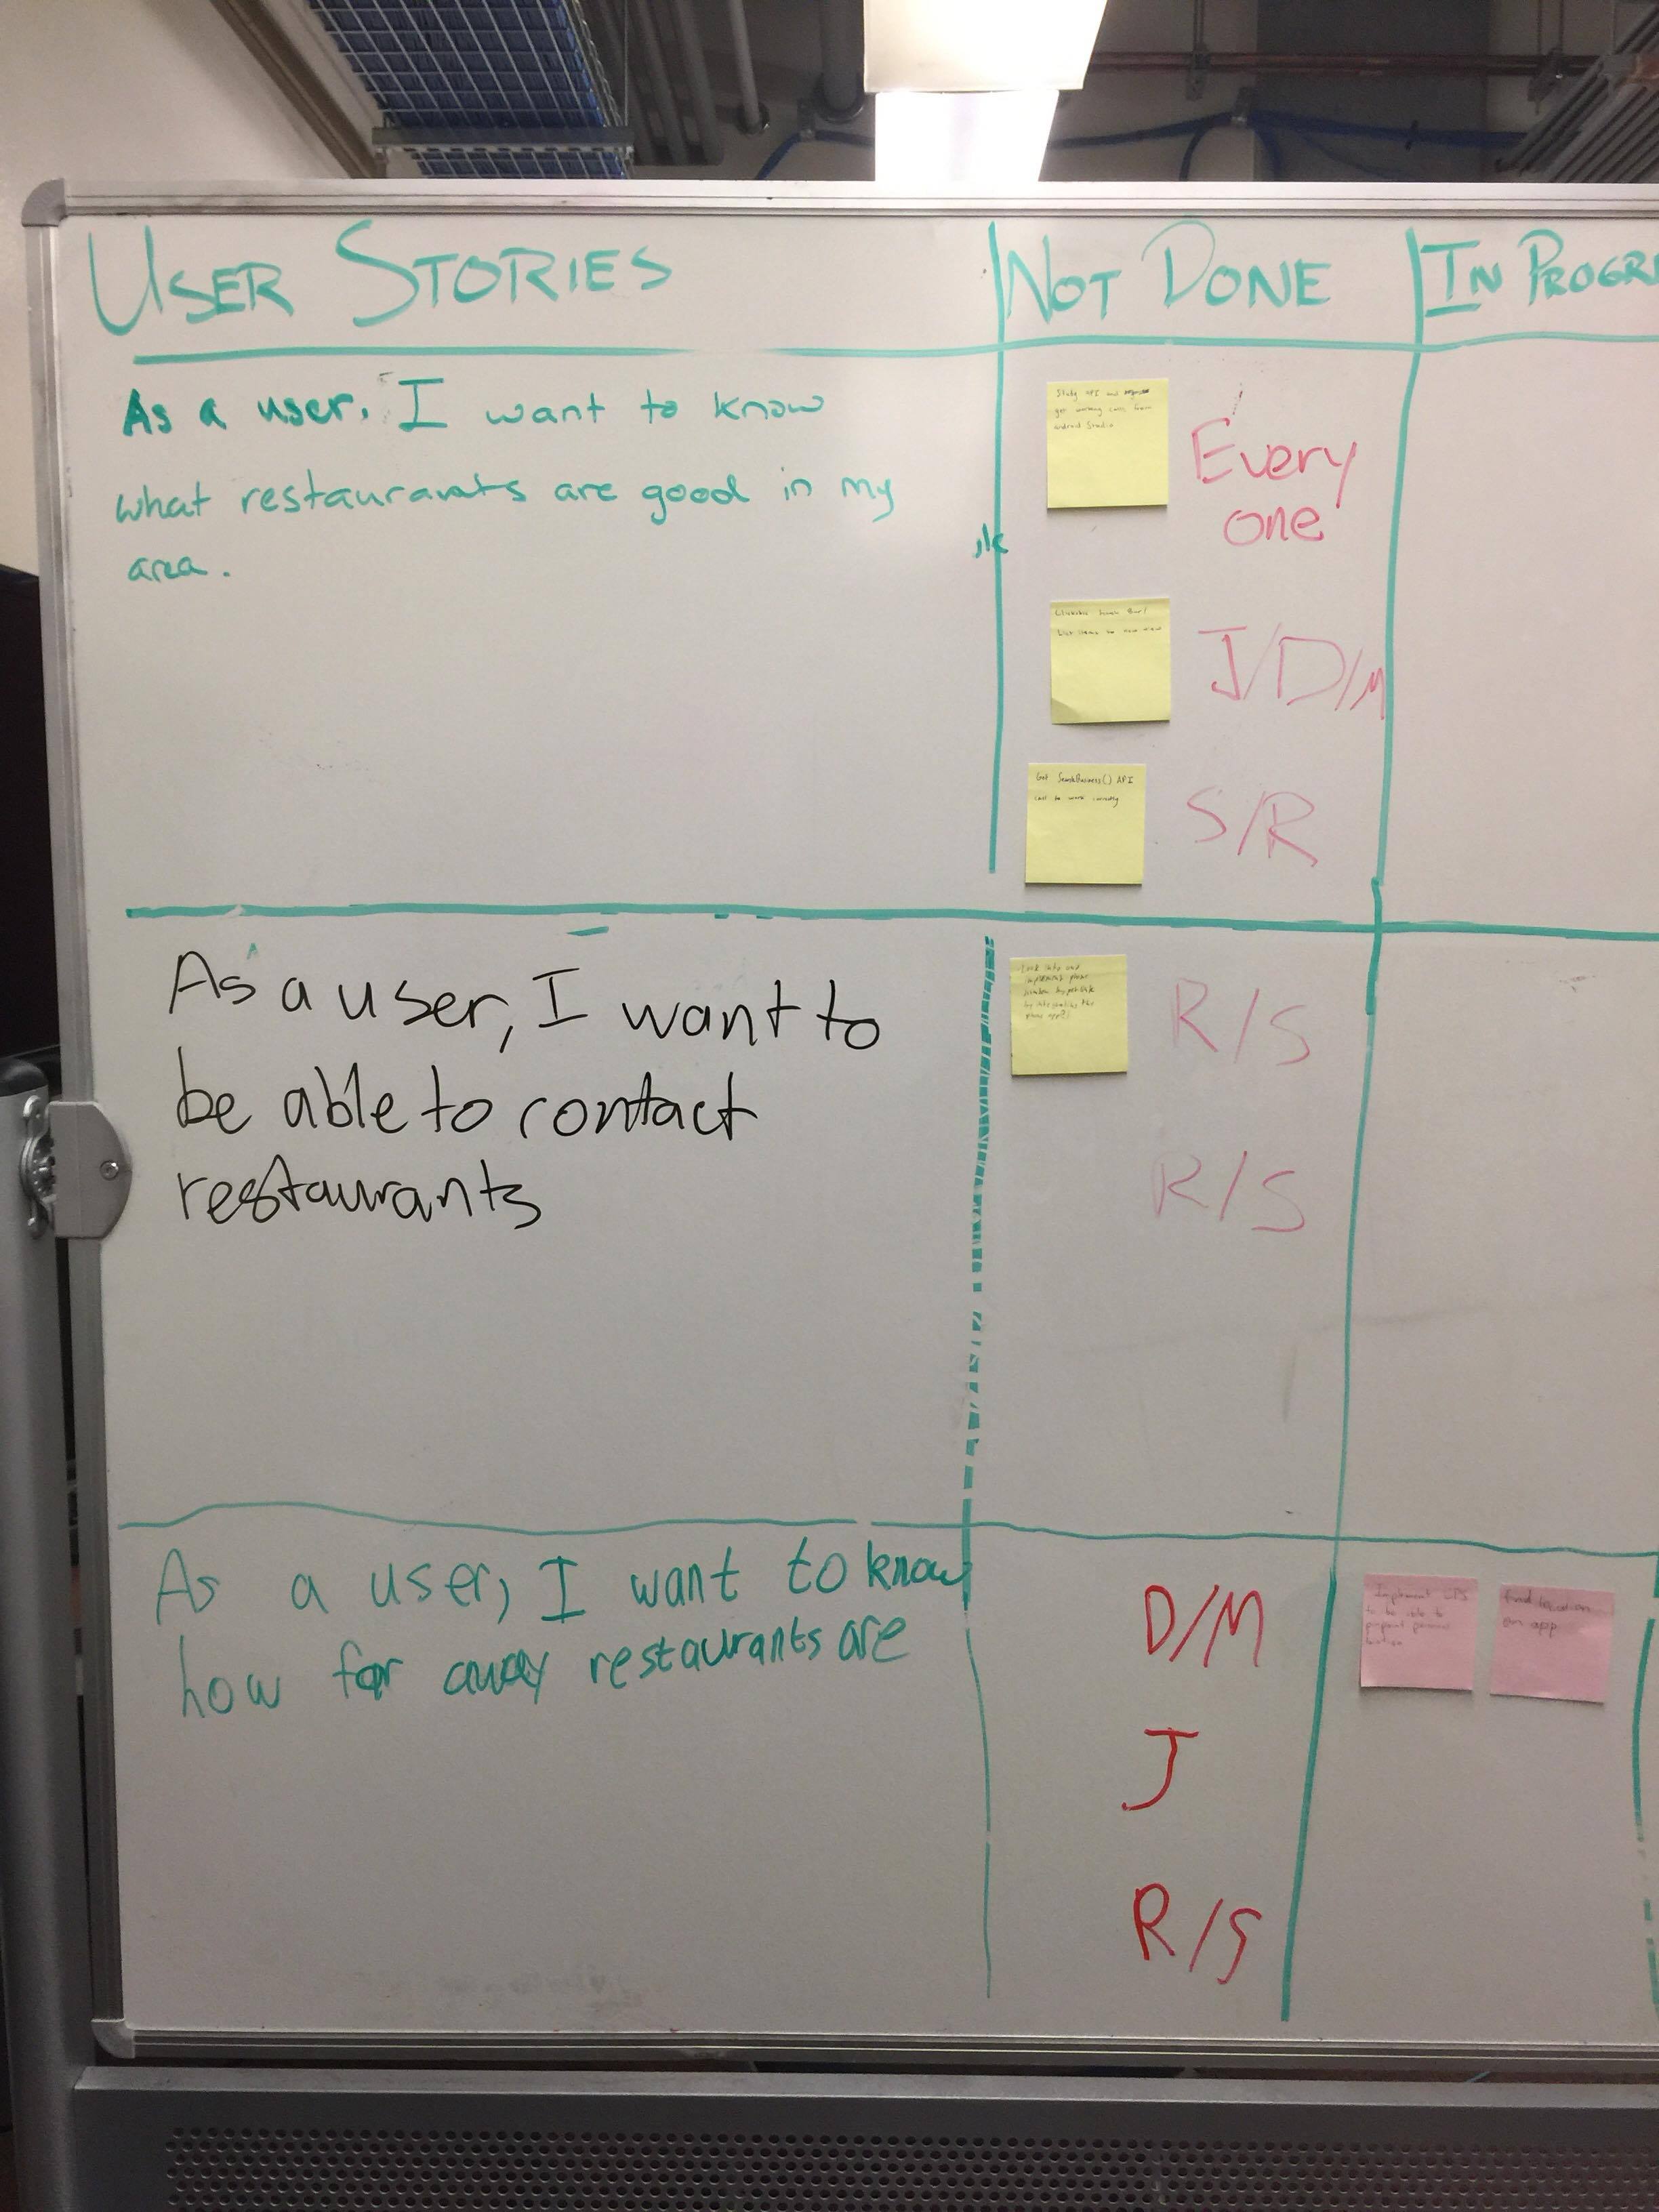 USER STORIES
NOT DONE
IN PROGR
As a user, I want to know
what restaurants are good in my
area.
Study API and
get working calls from
android Studio
Every
one
List items to new view
J/D/M
Get SearchBusiness() API
call to work correctly
S/R
As a user, I want to
be able to contact
restaurants
Look into and
implement phone
number hyperlink
phone app?)
R/S
R/S
As a user, I want to know
how far away restaurants are
D/M
J
R/S
Implement GPS
to be able to
location
find location
on app